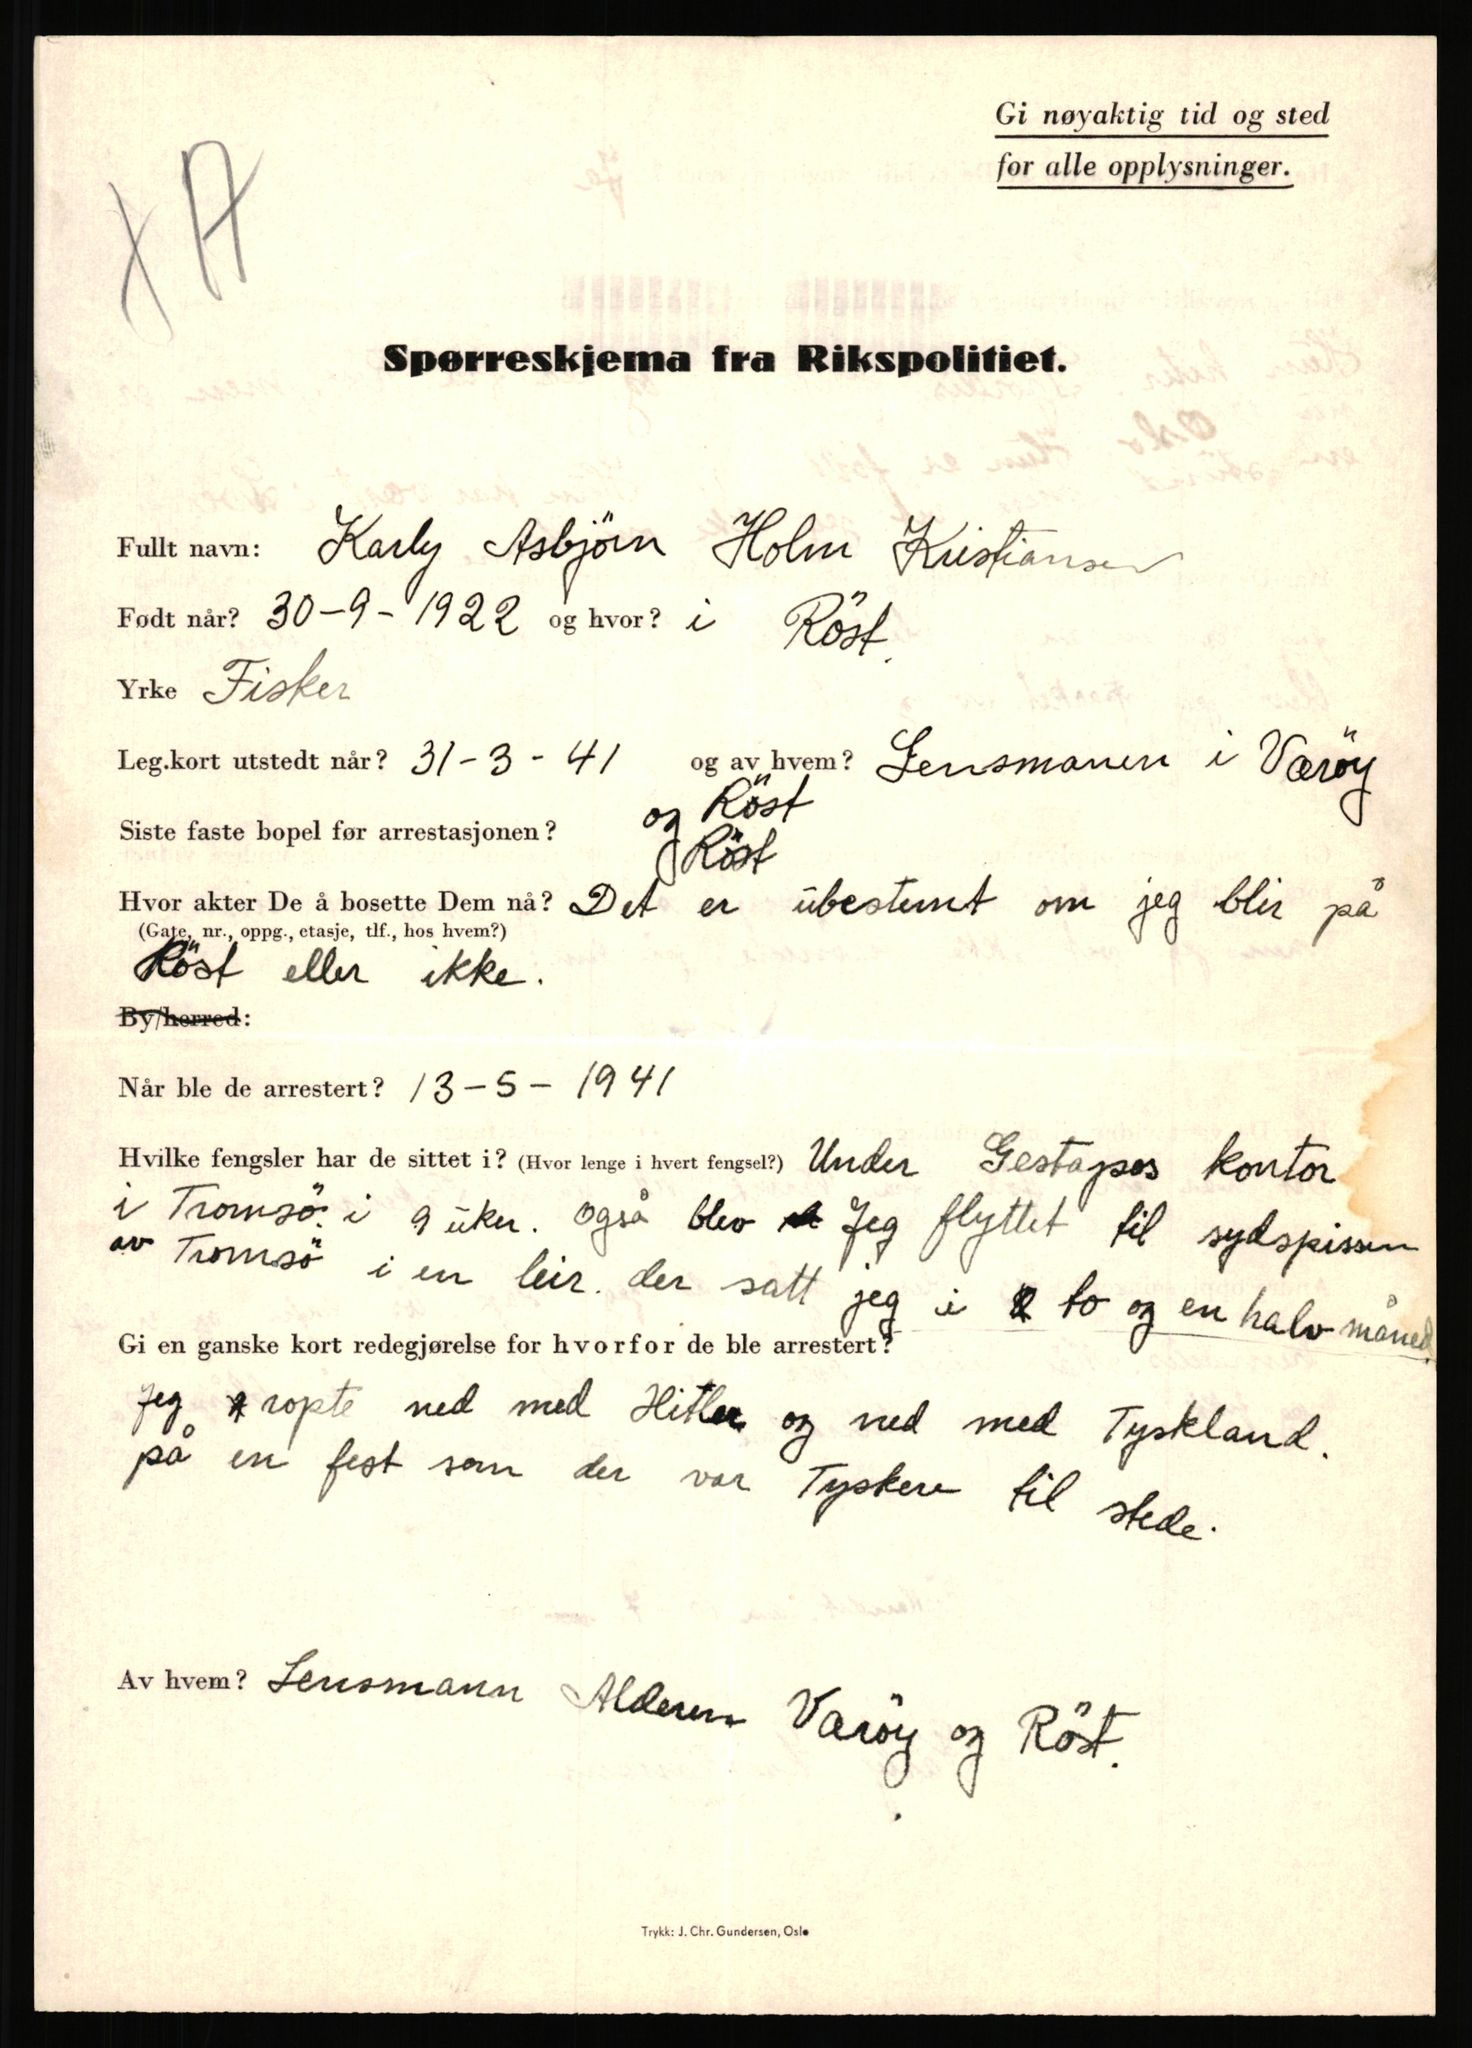 Gi nøyaktig tid og sted
for alle opplysninger.
X A
Spørreskjema fra Rikspolitiet.
Fullt navn: Karly Asbjörn Holm Kristiansen
Født når? 30-9-1922 og hvor? i Röst.
Yrke Fisker
Leg.kort utstedt når? 31-3-41 og av hvem? Lensmanen i Væröy
og Röst
Siste faste bopel før arrestasjonen? Röst
Hvor akter De å bosette Dem nå? Det er ubestemt om jeg blir på
(Gate, nr., oppg., etasje, tlf., hos hvem?)
Röst eller ikke.
By/herred:
Når ble de arrestert? 13-5-1941
Hvilke fengsler har de sittet i? (Hvor lenge i hvert fengsel?) Under Gestapos kontor
i Tromsö. i 9 uker. Også blev Jeg flyttet til sydspissen
av Tromsö i en leir. der satt jeg i to og en halv måned.
Gi en ganske kort redegjørelse for hvorfor de ble arrestert?
Jeg ropte ned med Hitler og ned med Tyskland.
på en fest som der var Tyskere til stede.
Av hvem? Lensmann Væröy og Röst.
Trykk: J. Chr. Gundersen, Oslo